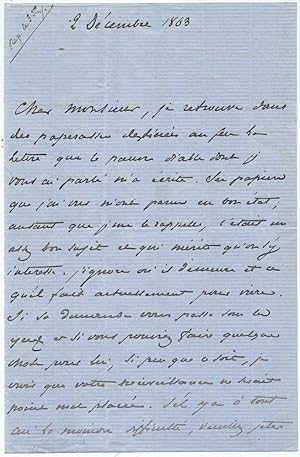 Rép. le 3 Xbre
2 Décembre 1863
Cher Monsieur, je retrouve dans
des paperasses destinées au feu la
lettre que le pauvre diable dont je
vous ai parlé m'a écrite. Ses papiers
que j'ai vus m'ont paru en bon état,
autant que je me le rappelle, c'était un
assez bon sujet et qui mérite qu'on s'y
intéresse. j'ignore où il demeure et ce
qu'il fait actuellement pour vivre.
Si sa demande vous passe sous les
yeux et si vous pouviez faire quelque
chose pour lui, si peu que ce soit, je
crois que votre bienveillance ne serait
point mal placée. S'il y a à tout
ceci la moindre difficulté, veuillez jeter